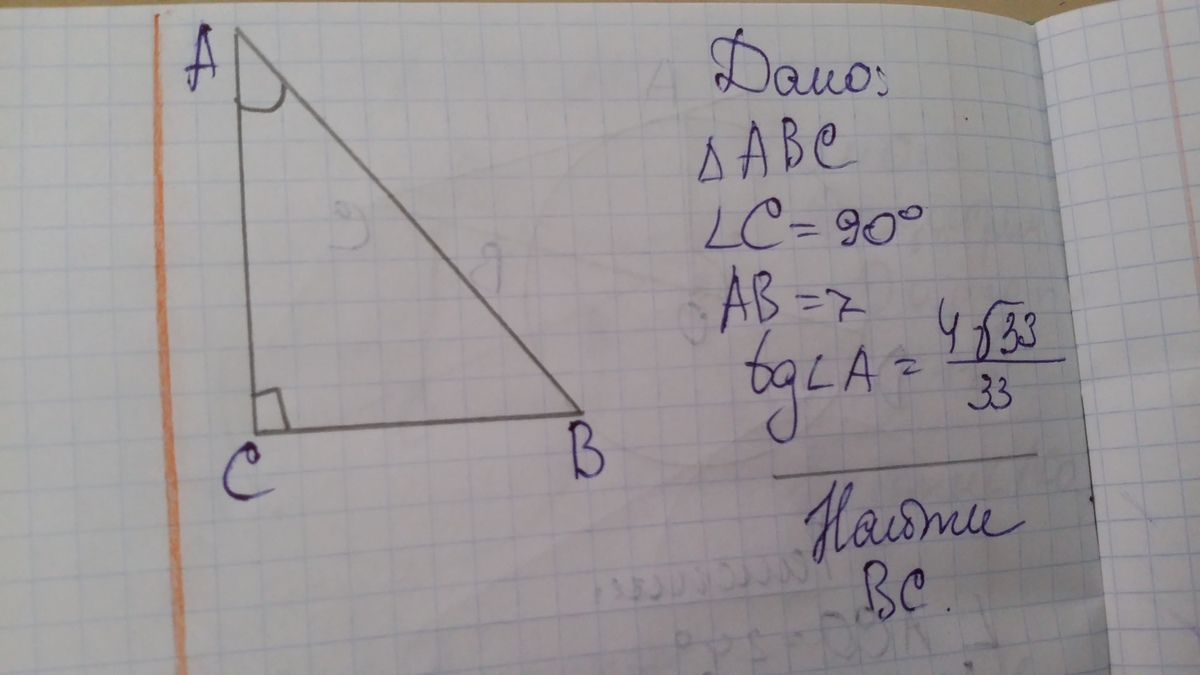 A
C
B
Дано:
△ABC
∠C = 90°
AB = 7
tg∠A = 4√33/33
Найти
BC.